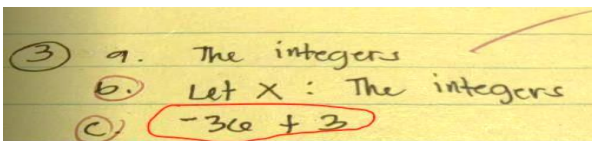 3 a. The integers
b. Let X : The integers
c. -36 + 3